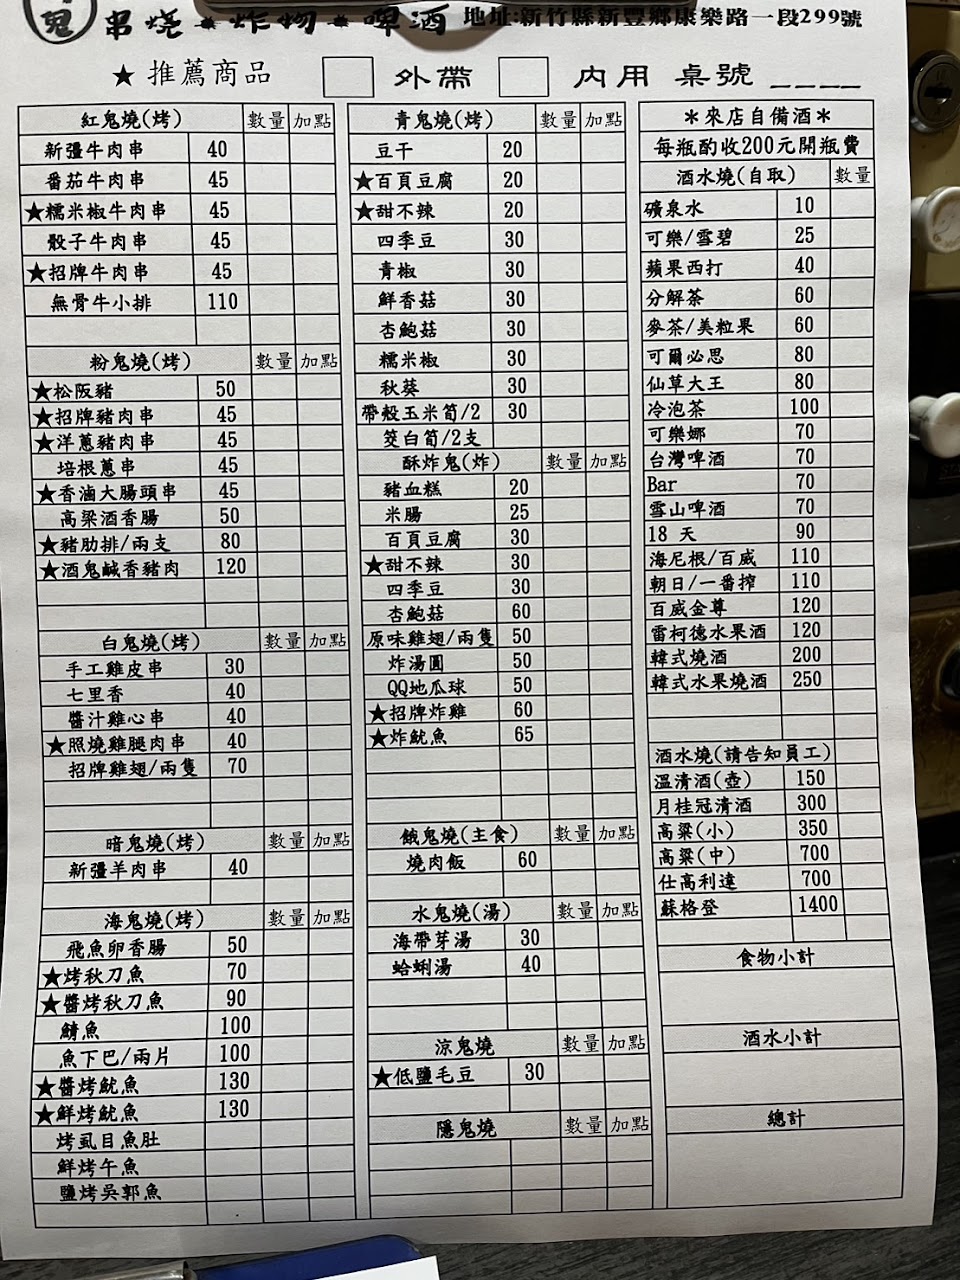 鬼 串燒★炸物★啤酒 地址:新竹縣新豐鄉康樂路一段299號
★ 推薦商品 外帶 內用 桌號 ____
紅鬼燒(烤) 數量 加點
新疆牛肉串 40
番茄牛肉串 45
★糯米椒牛肉串 45
骰子牛肉串 45
★招牌牛肉串 45
無骨牛小排 110
粉鬼燒(烤) 數量 加點
★松阪豬 50
★招牌豬肉串 45
★洋蔥豬肉串 45
培根蔥串 45
★香滷大腸頭串 45
高粱酒香腸 50
★豬肋排/兩支 80
★酒鬼鹹香豬肉 120
白鬼燒(烤) 數量 加點
手工雞皮串 30
七里香 40
醬汁雞心串 40
★照燒雞腿肉串 40
招牌雞翅/兩隻 70
暗鬼燒(烤) 數量 加點
新疆羊肉串 40
海鬼燒(烤) 數量 加點
飛魚卵香腸 50
★烤秋刀魚 70
★醬烤秋刀魚 90
鯖魚 100
魚下巴/兩片 100
★醬烤魷魚 130
★鮮烤魷魚 130
烤虱目魚肚
鮮烤午魚
鹽烤吳郭魚
青鬼燒(烤) 數量 加點
豆干 20
★百頁豆腐 20
★甜不辣 20
四季豆 30
青椒 30
鮮香菇 30
杏鮑菇 30
糯米椒 30
秋葵 30
帶殼玉米筍/2 30
筊白筍/2支
酥炸鬼(炸) 數量 加點
豬血糕 20
米腸 25
百頁豆腐 30
★甜不辣 30
四季豆 30
杏鮑菇 60
原味雞翅/兩隻 50
炸湯圓 50
QQ地瓜球 50
★招牌炸雞 60
★炸魷魚 65
餓鬼燒(主食) 數量 加點
燒肉飯 60
水鬼燒(湯) 數量 加點
海帶芽湯 30
蛤蜊湯 40
涼鬼燒 數量 加點
★低鹽毛豆 30
隱鬼燒 數量 加點
＊來店自備酒＊
每瓶酌收200元開瓶費
酒水燒(自取) 數量
礦泉水 10
可樂/雪碧 25
蘋果西打 40
分解茶 60
麥茶/美粒果 60
可爾必思 80
仙草大王 80
冷泡茶 100
可樂娜 70
台灣啤酒 70
Bar 70
雪山啤酒 70
18 天 90
海尼根/百威 110
朝日/一番搾 110
百威金尊 120
雷柯德水果酒 120
韓式燒酒 200
韓式水果燒酒 250
酒水燒(請告知員工)
溫清酒(壺) 150
月桂冠清酒 300
高粱(小) 350
高粱(中) 700
仕高利達 700
蘇格登 1400
食物小計
酒水小計
總計